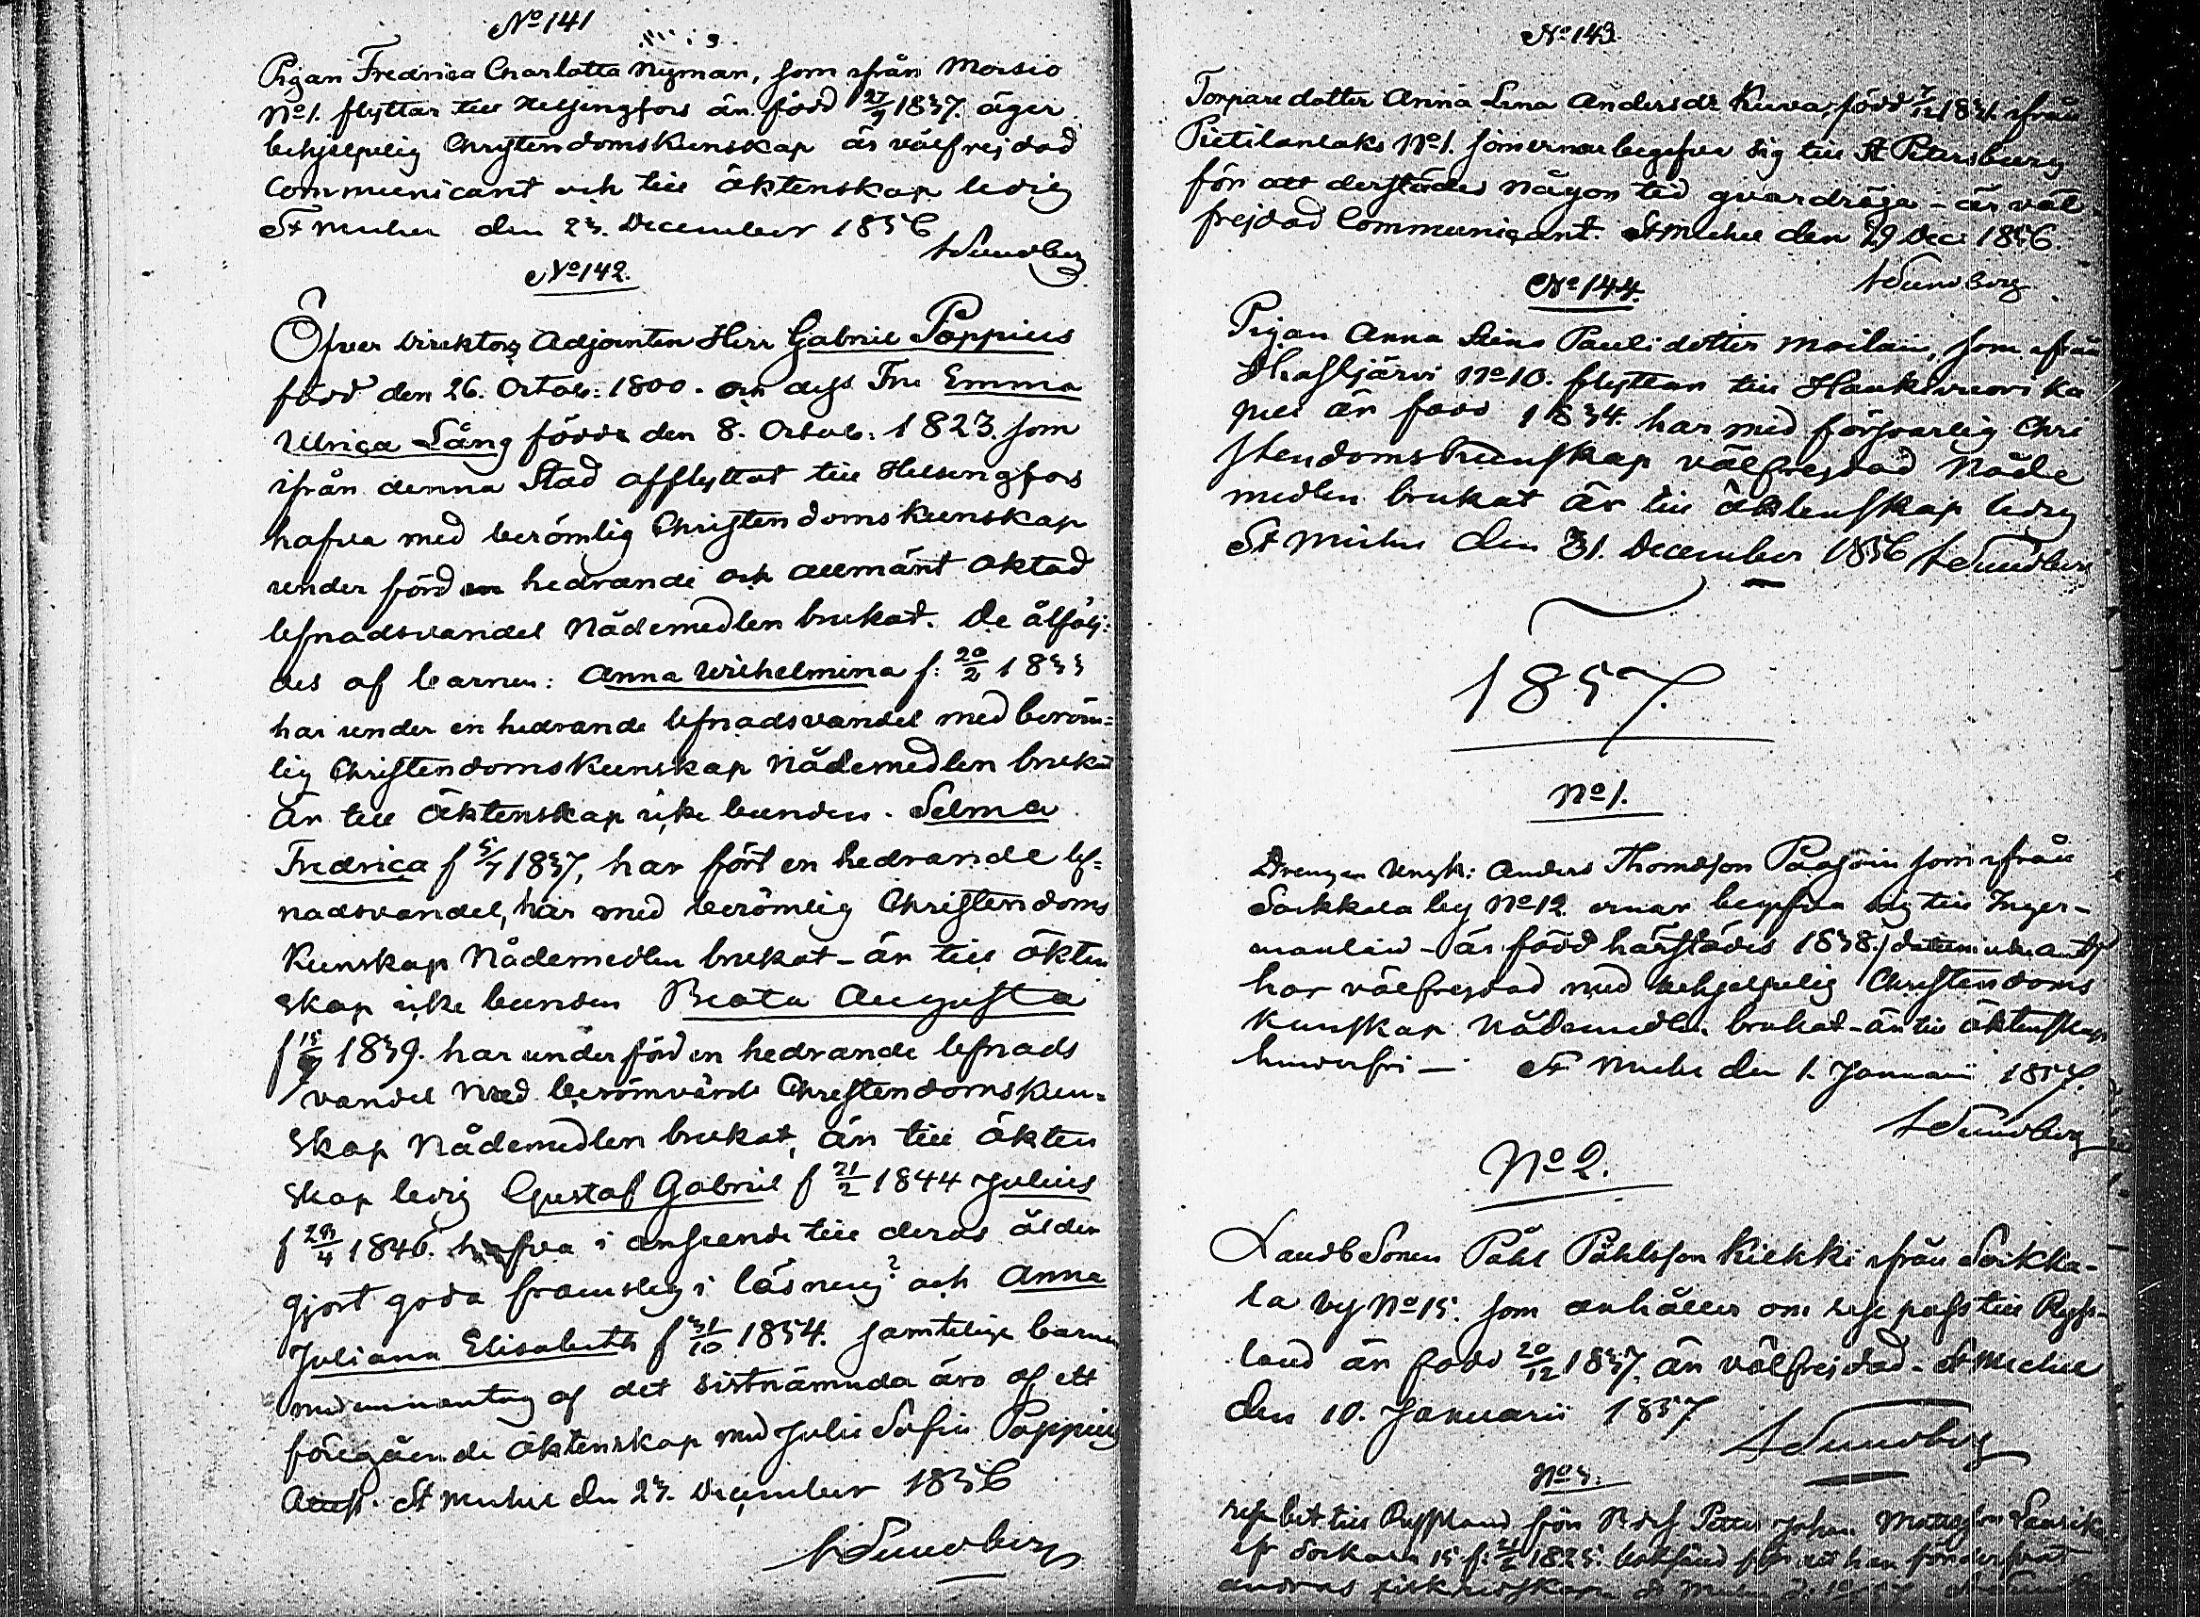 No 141
Pigan Fredrica Charlotta Nyman, som ifrån Moisio
No 1. flyttar till Helsingfors är född 27/9 1837. äger
behjelpelig Christendomskunskap är välfrejdad
Communicant och till äktenskap ledig
St Michel den 23. December 1856
ASundberg
No 142.
Öfver Direktors Adjointen Herr Gabriel Poppius
född den 26. Octob: 1800. och dess Fru Emma
Ulrica Lång född den 8. Octob: 1823. som
ifrån denna Stad afflyttat till Helsingfors
hafva med berömlig Christendomskunskap
under förd hedrande och allmänt aktad
lefnadsvandel Nådemedlen brukat. De åtföl=
des af barnen: Anna Wilhelmina f: 20/2 1833
har under en hedrande lefnadsvandel med beröm=
lig Christendomskunskap Nådemedlen brukat
är till äktenskap icke bunden. Selma
Fredrica f 5/7 1837, har fört en hedrande lef=
nadsvandel, har med berömlig Christendoms
Kunskap Nådemedlen brukat – är till äkten
skap icke bunden Beata Augusta
f 15/9 1839. har under förd en hedrande lefnads
vandel med berömvärd Christendomskun=
skap Nådemedlen brukat, är till äkten
skap ledig Gustaf Gabriel f 21/2 1844 Julius
f 4 1846. hafva i anseende till deras ålder
gjort goda framsteg i läsning? och Anna
Juliana Elisabeth f 31/10 1854. samtelige barnen
med undantag af det sistnämnda äro af ett
föregående äktenskap med Julie Sofie Poppius
St Michel den 23. December 1856
ASundberg
No 143.
Torpare dotter Anna Lena Andersdr Kuva, född 7/12 1831. ifrån
Pietilanlaks No 1. som ernar begifva sig till St Petersburg
för att derstädes någon tid qvardröja – är väl
frejdad Communicant. St Michel den 29 Dec: 1856.
ASundberg
No 144.
Pigan Anna Stina Paulidotter Moilain, som ifrån
No 10. flyttar till Haukivuori ka
pell är född 1834. har med försvarlig Chri
stendomskunskap välfrejdad Nåde
medlen brukat är till äktenskap ledig
St Michel den 31. December 1856 ASundberg
1857.
No 1.
Drengen Anders Thomasson Paasoin som ifrån
Soikkala by No 12. ernar begifva sig till Inger-
manland – är född härstädes 1838.
har välfrejdad med behjelpelig Christendoms
kunskap Nådemedlen brukat – är till äktenskap
hinderfri – St Michel den 1. Januarii 1857.
ASundberg
No 2.
Landb Sonen Påhl Påhlsson Kiekki ifrån Soikka-
la by No 15. som anhåller om resepass till Ryss-
land är född 20/12 1837. är välfrejdad – St Michel
den 10. Januarii 1857
ASundberg
No 3.
till Ryssland för Petter Johan Mattsson
15 f: 1825.
andras